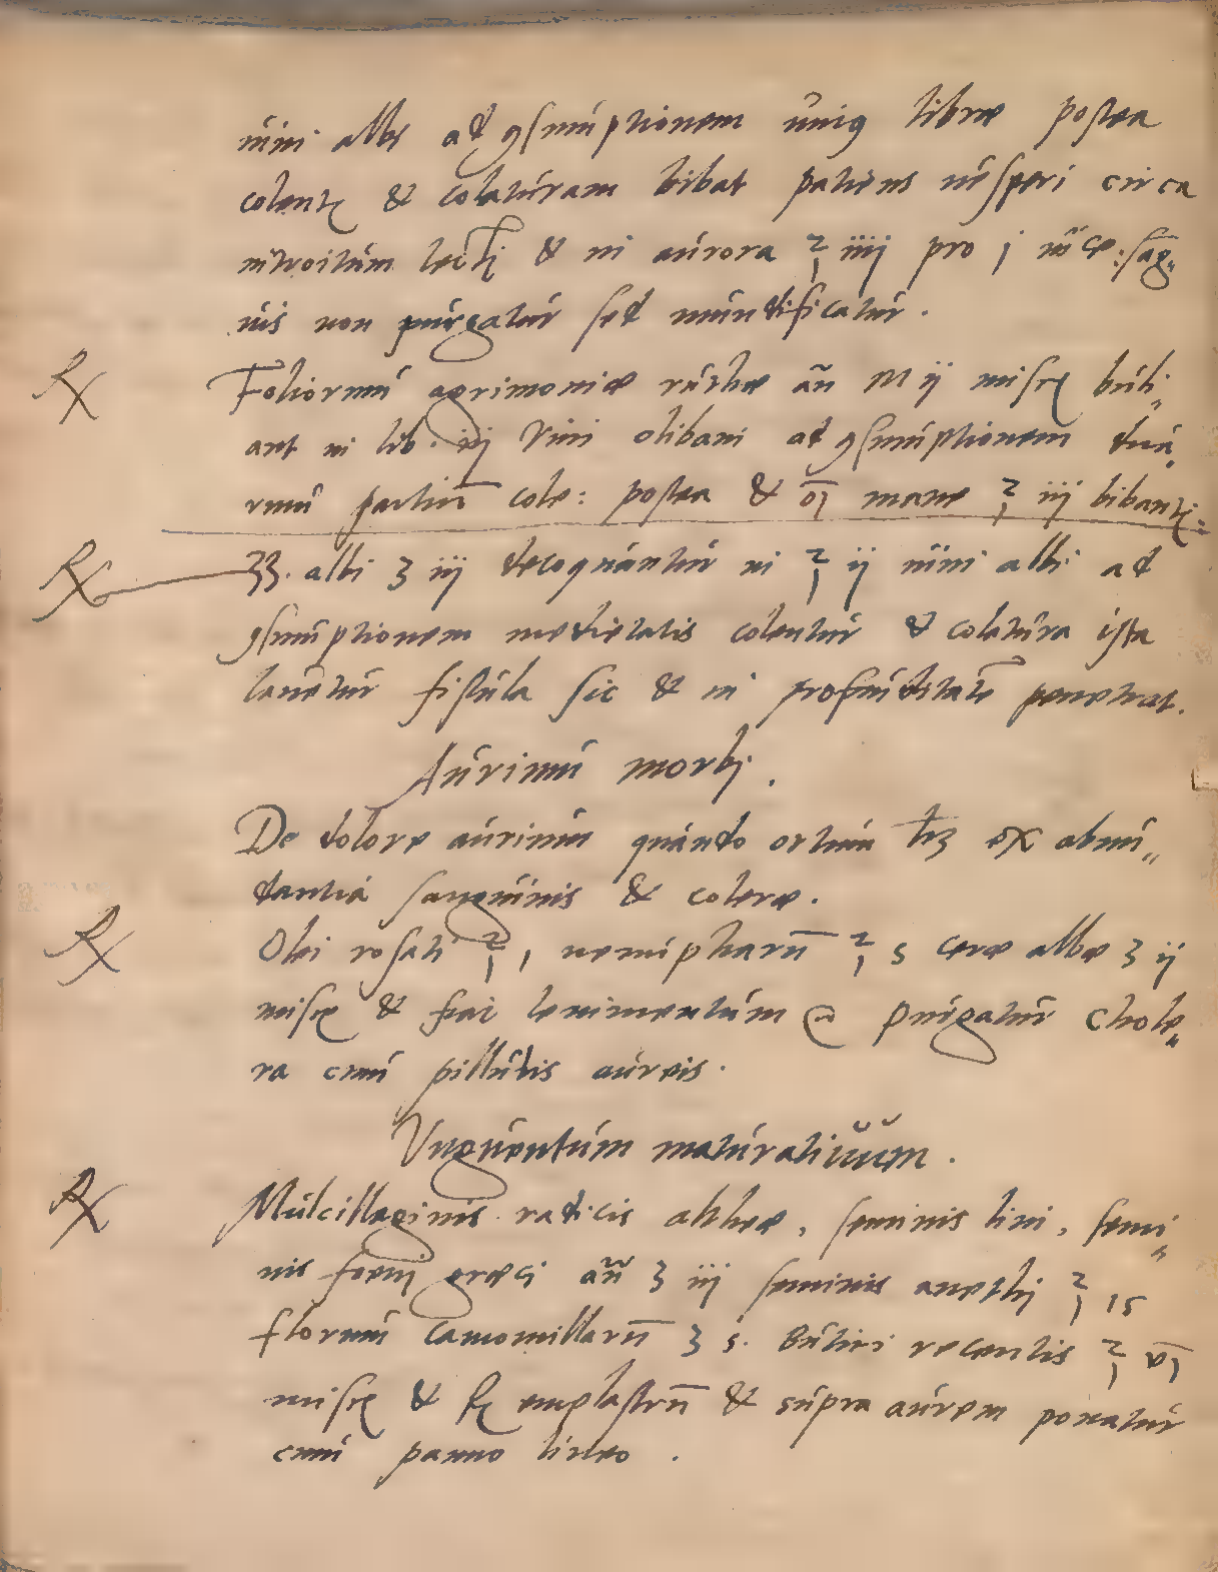 uini albi ad ꝯsumptionem uniꝯ libræ postea
colentꝭ & colaturam bibat patiens uésperi circa
introitum lectj & in aurora ℥ iiij pro j uice: sag„
uis non purgatur sed mundificatur.
℞ Foliorum agrimoniæ ruthæ añ M ij miscꝭ buli„
ant in lib. iij Vini olibani ad ꝯsumptionem dua„
rum partiū cole: postea & oī mane ℥ iij bibantꝭ:
℞ ZZ. albi ʒ iij decoquantur in ℥ ij uini albi ad
ꝯsumptionem medietatis colentur & colatura ista
lauetur fistula sic & in profunditatē penetrat.
Aurium morbj.
De dolore aurium quando ortum hꝫ ex abun„
dantia sanguinis & coleræ.
℞ Olei rosati ℥ j, nenupharū ℥ s ceræ albæ ʒ ij
miscꝭ & fiat lenimentum @ purgatur chole„
ra cum pillulis aureis.
Vnguentum maturatiuum.
℞ Mulcillaginis radicis altheæ, seminis lini, semi„
nis foenj græcj añ ʒ iij seminis anethj ℥ is
florum camomillarū ʒ s. Butiri recentis ℥ vj
miscꝭ & fꝭ emplastrū & supra aurem ponatur
cum panno lineo.